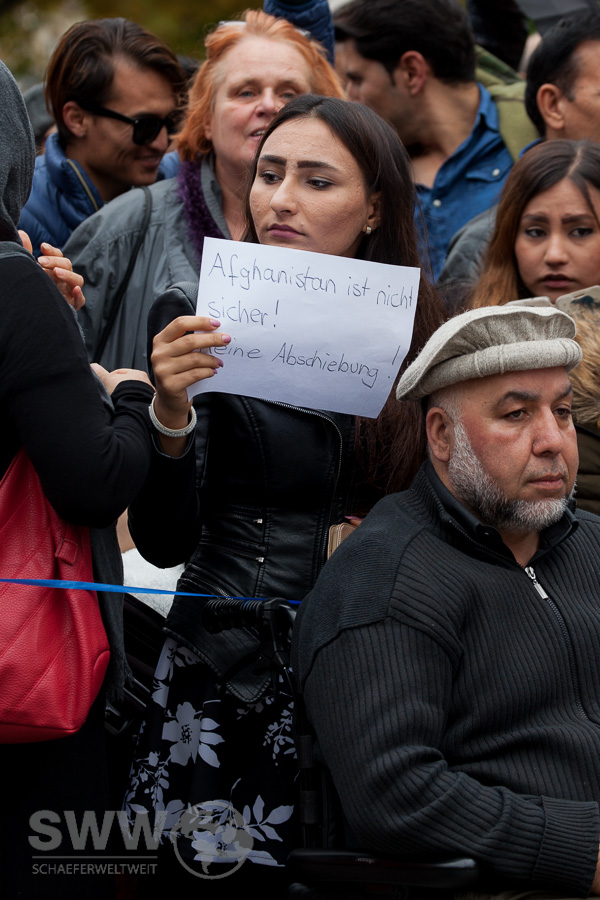 Afghanistan ist nicht
sicher!
keine Abschiebung!
SWW
SCHAEFERWELTWEIT